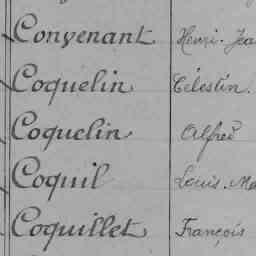 Convenant Henri-Jea
Coquelin Célestin.
Coquelin Alfred
Coquil Louis-Ma
Coquillet François